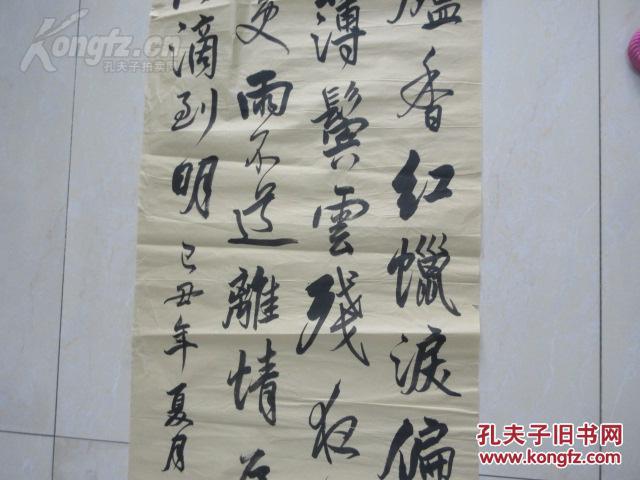 香紅蠟淚偏
薄鬢雲殘夜
更雨不道離情
滴到明
己丑年夏月
Kongfz.com
孔夫子拍卖网
孔夫子旧书网
www.kongfz.com